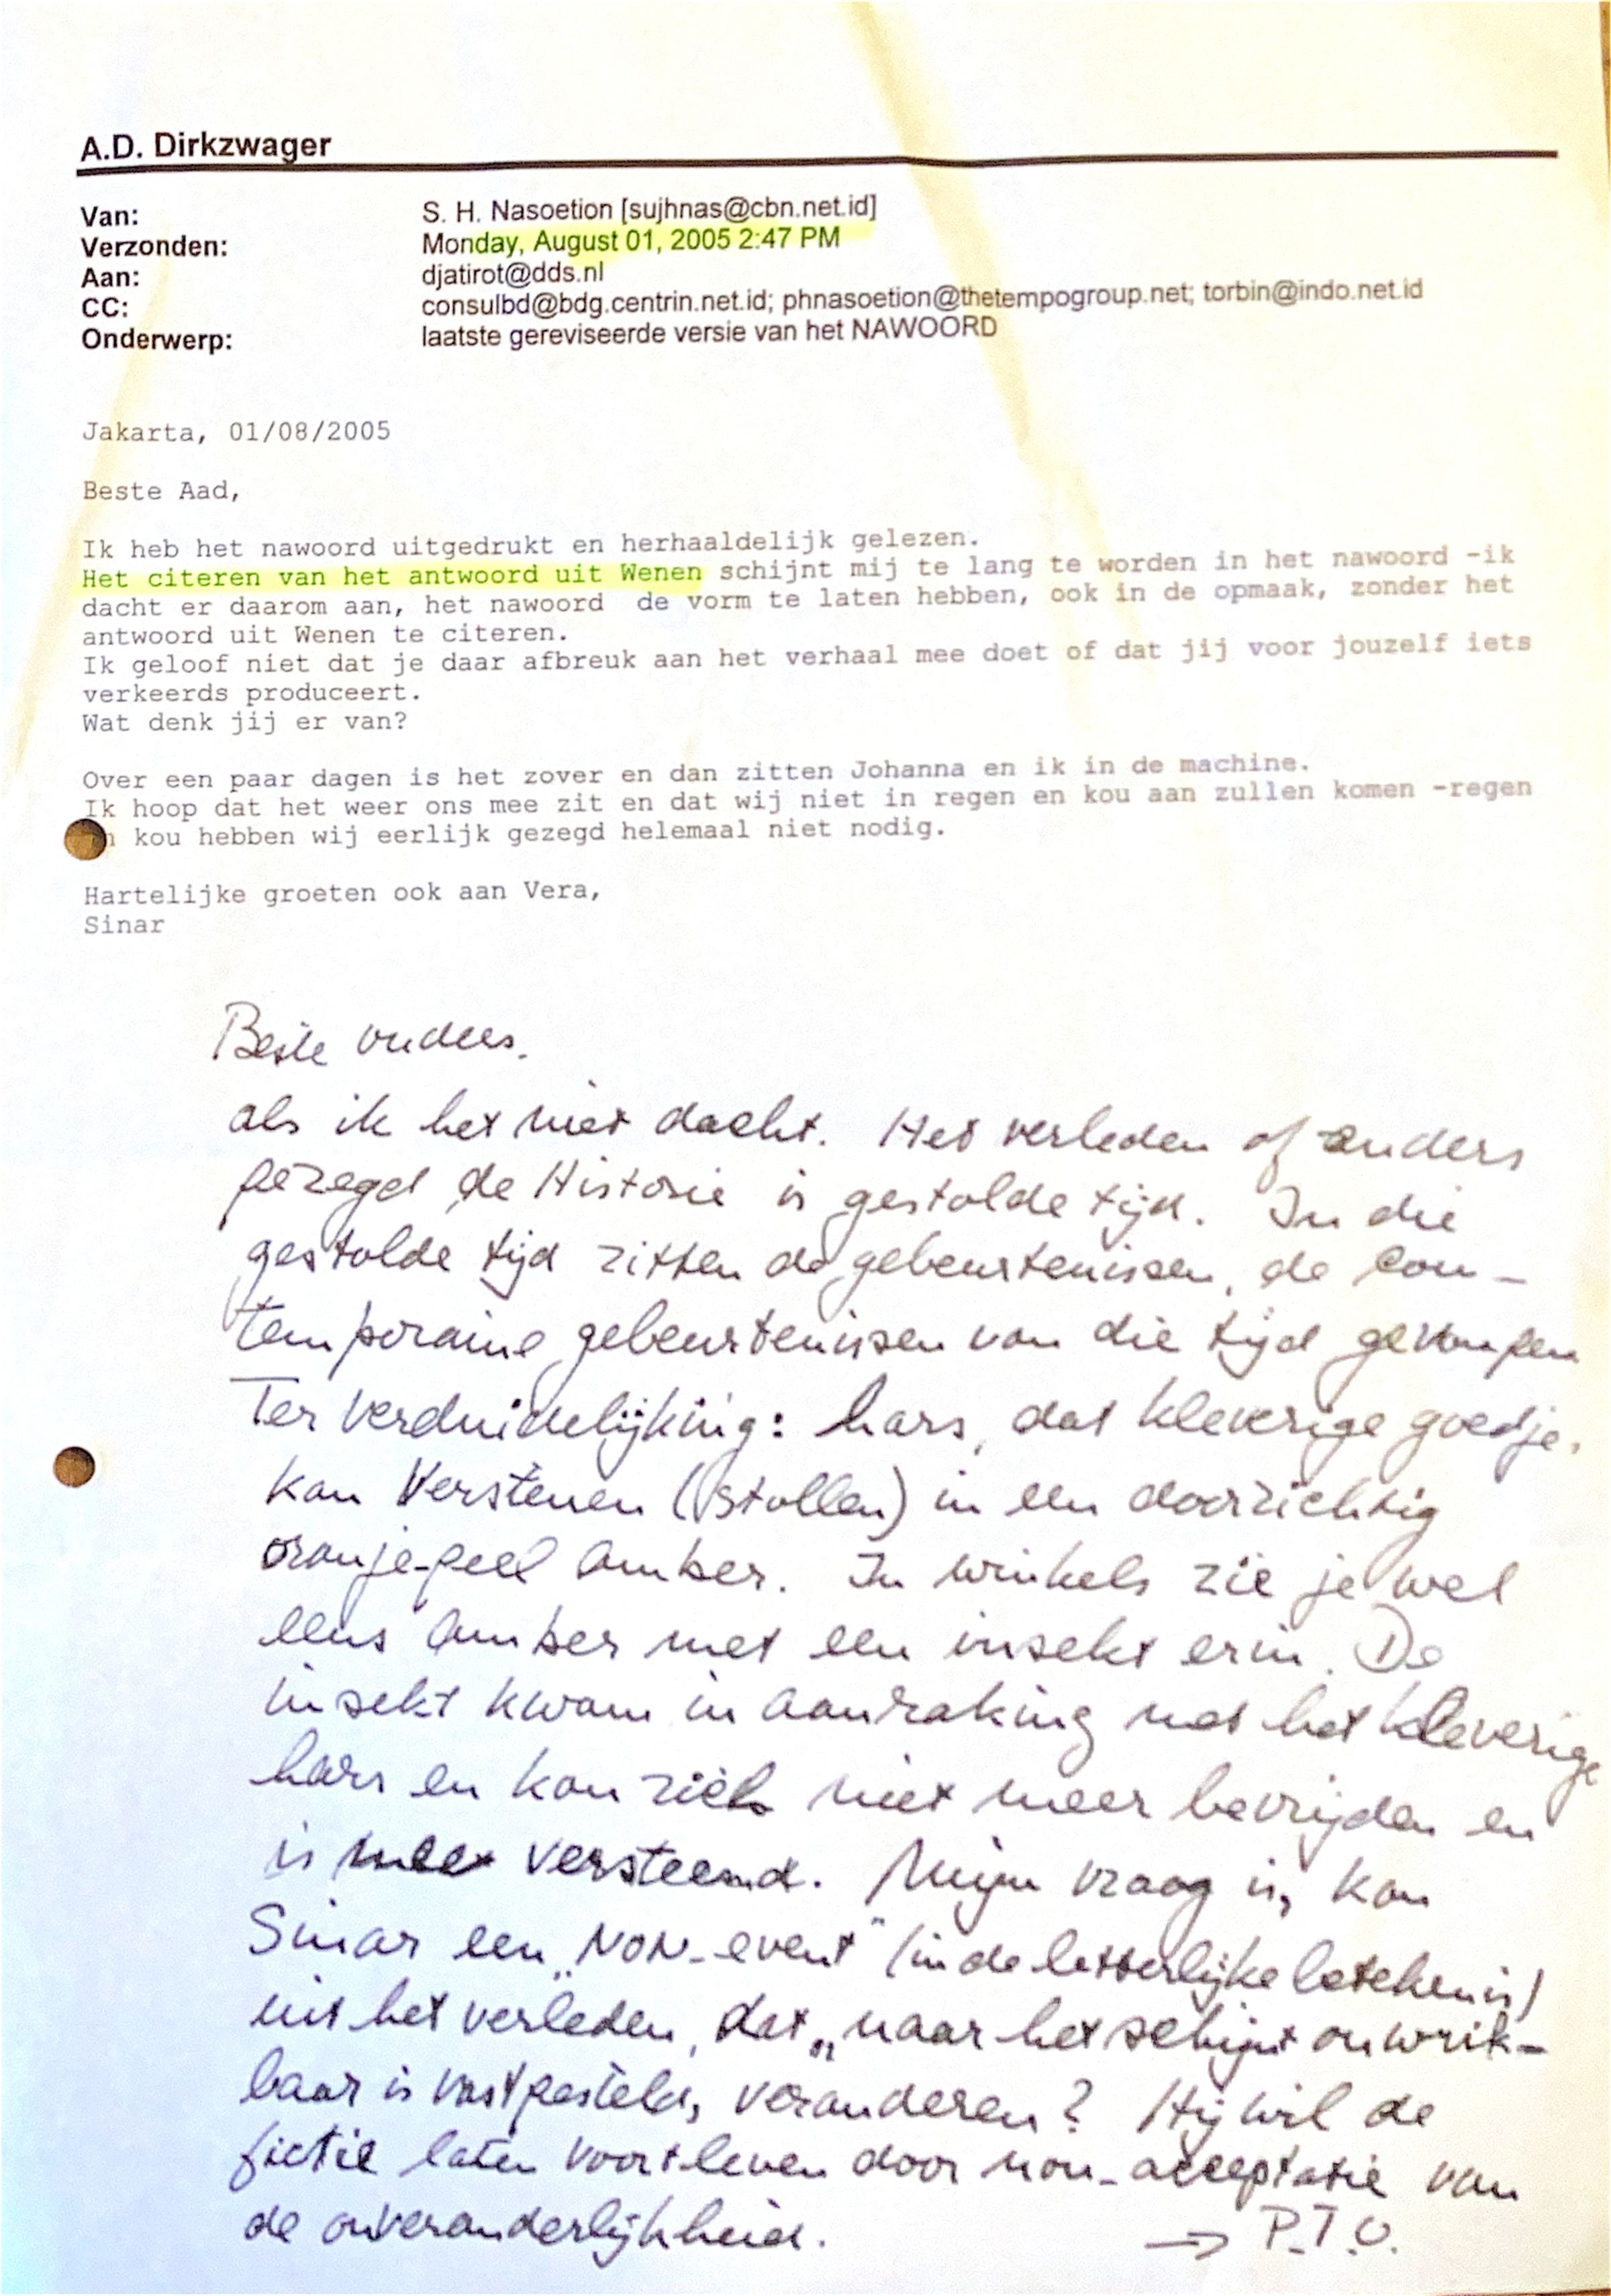 A.D. Dirkzwager
Van: S. H. Nasoetion [sujhnas@cbn.net.id]
Verzonden: Monday, August 01, 2005 2:47 PM
Aan: djatirot@dds.nl
CC: consulbd@bdg.centrin.net.id; phnasoetion@thetempogroup.net; torbin@indo.net.id
Onderwerp: laatste gereviseerde versie van het NAWOORD
Jakarta, 01/08/2005
Beste Aad,
Ik heb het nawoord uitgedrukt en herhaaldelijk gelezen.
Het citeren van het antwoord uit Wenen schijnt mij te lang te worden in het nawoord -ik
dacht er daarom aan, het nawoord de vorm te laten hebben, ook in de opmaak, zonder het
antwoord uit Wenen te citeren.
Ik geloof niet dat je daar afbreuk aan het verhaal mee doet of dat jij voor jouzelf iets
verkeerds produceert.
Wat denk jij er van?
Over een paar dagen is het zover en dan zitten Johanna en ik in de machine.
Ik hoop dat het weer ons mee zit en dat wij niet in regen en kou aan zullen komen -regen
n kou hebben wij eerlijk gezegd helemaal niet nodig.
Hartelijke groeten ook aan Vera,
Sinar
Beste
als ik het niet dacht. Het verleden of anders
gezegd de Historie is gestolde tijd. In die
gestolde tijd zitten de gebeurtenissen, de con-
temporaine gebeurtenissen van die tijd gevangen
Ter verduidelijking: hars, dat kleverige goedje,
kan verstenen (stollen) in een doorzichtig
oranje-geel amber. In winkels zie je wel
eens amber met een insekt erin. De
insekt kwam in aanraking met het kleverige
hars en kon zich niet meer bevrijden en
is mee versteend. Mijn vraag is, kan
Sinar een „NON-event" (in de letterlijke betekenis)
uit het verleden, dat, naar het schijnt onwrik-
baar is vastgesteld, veranderen? Hij wil de
fictie laten voortleven door non-acceptatie van
de onveranderlijkheid. → P.T.O.